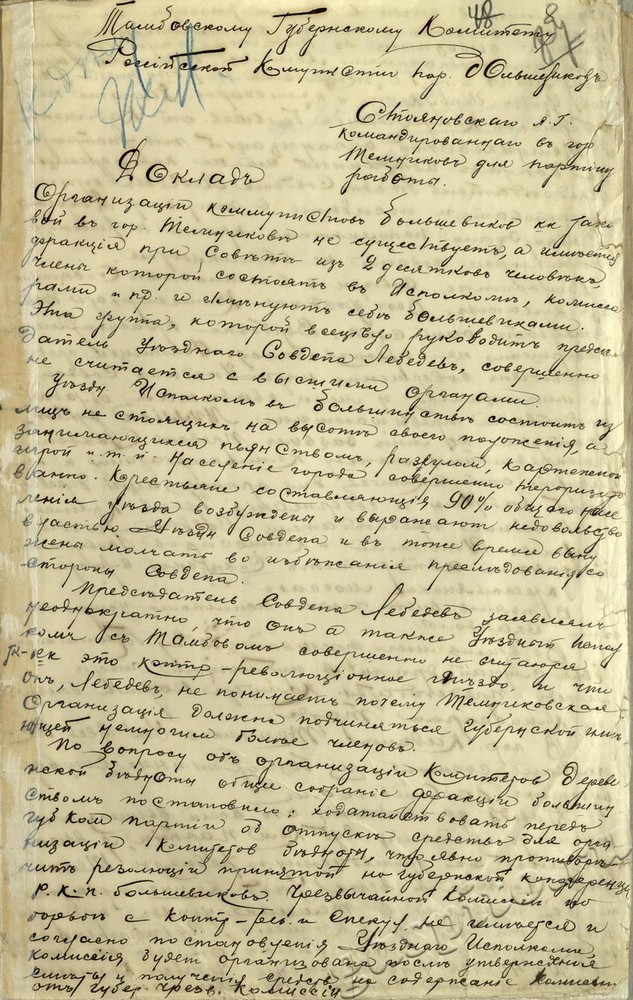 48
Тамбовскому Губернскому Комитету
Россійской Комунистич пар. большевиковъ
Стояновскаго А. Г.
командированнаго въ гор
Темниковъ для партійн
работы.
Докладъ
Организацій коммунистовъ большевиков кк тако
вой въ гор. Темниковѣ не существуетъ, а имѣется
фракція при Совѣтѣ изъ 2 десятковъ человѣкъ,
члены которой состоятъ въ Исполкомѣ, комисса
рами и пр. и именуютъ себя большевиками.
Эта группа, которой всецѣло руководитъ предсѣ
датель Уѣзднаго Совдепа Лебедевъ, совершенно
не считается с высшими органами.
Уѣздн Исполкомъ въ большинствѣ состоитъ из
лицъ не стоящихъ на высотѣ своего положенія, а
занимающихся пьянствомъ, разгулом, картежной
игрой и. т. п. Населеніе города совершенно терроризир
вано. Крестьяне составляющія 90% общаго насе
ленія уѣзда возбуждены и выражаютъ недовольство
властью Уѣздн Совдепа и въ тоже время вын
ждены молчать во избѣжаніе преслѣдованія со
стороны Совдепа.
Предсѣдатель Совдепа Лебедевъ заявлялъ
неоднократно, что онъ а также Уѣздный Испол
комъ съ Тамбовомъ совершенно не считаются
это контр-революціонное гнѣздо, и что
онъ, Лебедевъ, не понимаетъ почему Темниковская
Организація должна подчиняться Губернской
немногим болѣе членовъ.
По вопросу объ организаціи Комитетов дереве
нской бѣдноты общее собраніе фракціи большин
ствомъ постановило: ходатайствовать передъ
губком партіи об отпускѣ средствъ для орга
низаціи Комитетов бѣдноты, что явно противорѣ
читъ резолюціи принятой на губернской конференціи
Р. К. П. большевиковъ. Чрезвычайной комиссіи по
борьбѣ с контр-рев. и спекул. не имѣется и
согласно постановленія Уѣзднаго Исполкома
комиссія будет организована послѣ утвержденія
смѣты и полученія средствъ на содержаніе комиссіи
отъ губер. чрезв. комиссіи